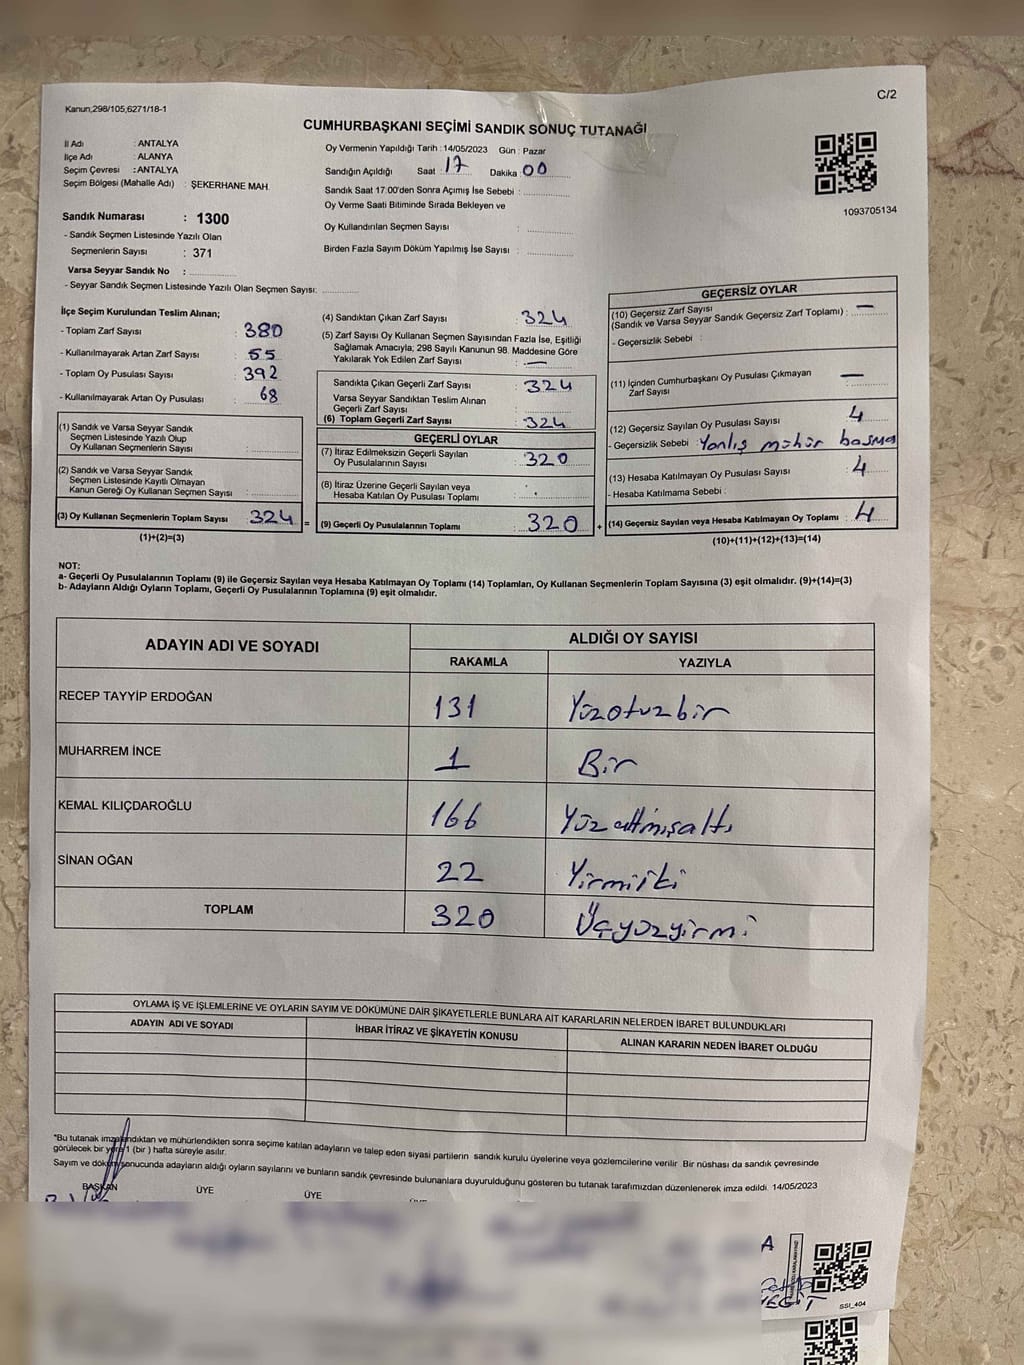 C/2
Kanun,298/105,6271/18-1
CUMHURBAŞKANI SEÇİMİ SANDIK SONUÇ TUTANAĞI
İl Adı : ANTALYA
İlçe Adı : ALANYA
Seçim Çevresi : ANTALYA
Seçim Bölgesi (Mahalle Adı) : ŞEKERHANE MAH.
Sandık Numarası : 1300
- Sandık Seçmen Listesinde Yazılı Olan
Seçmenlerin Sayısı : 371
Varsa Seyyar Sandık No :
- Seyyar Sandık Seçmen Listesinde Yazılı Olan Seçmen Sayısı:
Oy Vermenin Yapıldığı Tarih : 14/05/2023 Gün : Pazar
Sandığın Açıldığı Saat : 17 Dakika : 00
Sandık Saat 17:00'den Sonra Açımış İse Sebebi :
Oy Verme Saati Bitiminde Sırada Bekleyen ve
Oy Kullandırılan Seçmen Sayısı :
Birden Fazla Sayım Döküm Yapılmış İse Sayısı :
1093705134
İlçe Seçim Kurulundan Teslim Alınan;
- Toplam Zarf Sayısı : 380
- Kullanılmayarak Artan Zarf Sayısı : 55
- Toplam Oy Pusulası Sayısı : 392
- Kullanılmayarak Artan Oy Pusulası : 68
(1) Sandık ve Varsa Seyyar Sandık
Seçmen Listesinde Yazılı Olup
Oy Kullanan Seçmenlerin Sayısı :
(2) Sandık ve Varsa Seyyar Sandık
Seçmen Listesinde Kayıtlı Olmayan
Kanun Gereği Oy Kullanan Seçmen Sayısı :
(3) Oy Kullanan Seçmenlerin Toplam Sayısı 324 =
(1)+(2)=(3)
(4) Sandıktan Çıkan Zarf Sayısı : 324
(5) Zarf Sayısı Oy Kullanan Seçmen Sayısından Fazla İse, Eşitliği
Sağlamak Amacıyla; 298 Sayılı Kanunun 98. Maddesine Göre
Yakılarak Yok Edilen Zarf Sayısı : —
Sandıkta Çıkan Geçerli Zarf Sayısı : 324
Varsa Seyyar Sandıktan Teslim Alınan
Geçerli Zarf Sayısı :
(6) Toplam Geçerli Zarf Sayısı : 324
GEÇERLİ OYLAR
(7) İtiraz Edilmeksizin Geçerli Sayılan
Oy Pusulalarının Sayısı : 320
(8) İtiraz Üzerine Geçerli Sayılan veya
Hesaba Katılan Oy Pusulası Toplamı :
(9) Geçerli Oy Pusulalarının Toplamı : 320 +
GEÇERSİZ OYLAR
(10) Geçersiz Zarf Sayısı
(Sandık ve Varsa Seyyar Sandık Geçersiz Zarf Toplamı) : —
- Geçersizlik Sebebi :
(11) İçinden Cumhurbaşkanı Oy Pusulası Çıkmayan
Zarf Sayısı : —
(12) Geçersiz Sayılan Oy Pusulası Sayısı : 4
- Geçersizlik Sebebi : Yanlış mühür basma
(13) Hesaba Katılmayan Oy Pusulası Sayısı : 4
- Hesaba Katılmama Sebebi :
(14) Geçersiz Sayılan veya Hesaba Katılmayan Oy Toplamı : 4
(10)+(11)+(12)+(13)=(14)
NOT:
a- Geçerli Oy Pusulalarının Toplamı (9) ile Geçersiz Sayılan veya Hesaba Katılmayan Oy Toplamı (14) Toplamları, Oy Kullanan Seçmenlerin Toplam Sayısına (3) eşit olmalıdır. (9)+(14)=(3)
b- Adayların Aldığı Oyların Toplamı, Geçerli Oy Pusulalarının Toplamına (9) eşit olmalıdır.
ADAYIN ADI VE SOYADI
ALDIĞI OY SAYISI
RAKAMLA YAZIYLA
RECEP TAYYİP ERDOĞAN 131 Yüzotuzbir
MUHARREM İNCE 1 Bir
KEMAL KILIÇDAROĞLU 166 Yüzaltmışaltı
SİNAN OĞAN 22 Yirmiiki
TOPLAM 320 Üçyüzyirmi
OYLAMA İŞ VE İŞLEMLERİNE VE OYLARIN SAYIM VE DÖKÜMÜNE DAİR ŞİKAYETLERLE BUNLARA AİT KARARLARIN NELERDEN İBARET BULUNDUKLARI
ADAYIN ADI VE SOYADI İHBAR İTİRAZ VE ŞİKAYETİN KONUSU ALINAN KARARIN NEDEN İBARET OLDUĞU
*Bu tutanak imzalandıktan ve mühürlendikten sonra seçime katılan adayların ve talep eden siyasi partilerin sandık kurulu üyelerine veya gözlemcilerine verilir. Bir nüshası da sandık çevresinde
görülecek bir yere 1 (bir ) hafta süreyle asılır.
Sayım ve döküm sonucunda adayların aldığı oyların sayılarını ve bunların sandık çevresinde bulunanlara duyurulduğunu gösteren bu tutanak tarafımızdan düzenlenerek imza edildi. 14/05/2023
BAŞKAN ÜYE ÜYE
A
SSI_404